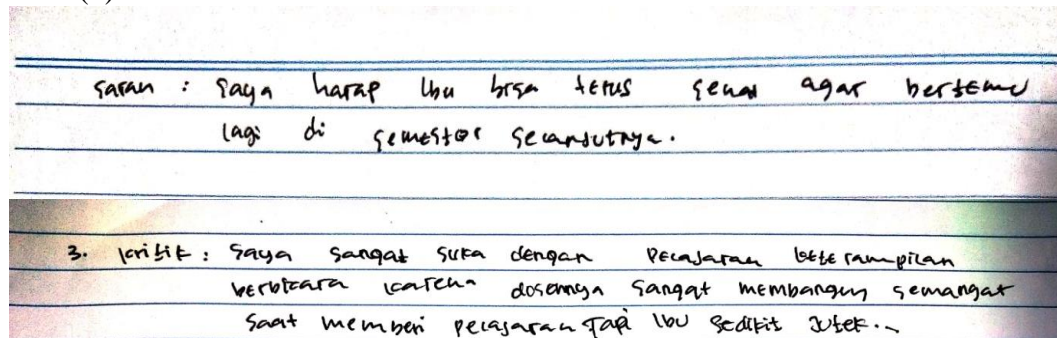 saran : saya harap Ibu bisa terus sehat agar bertemu
lagi di semester selanjutnya.
3. kritik : saya sangat suka dengan pelajaran keterampilan
berbicara karena dosennya sangat membangun semangat
saat memberi pelajaran tapi Ibu sedikit Jutek..